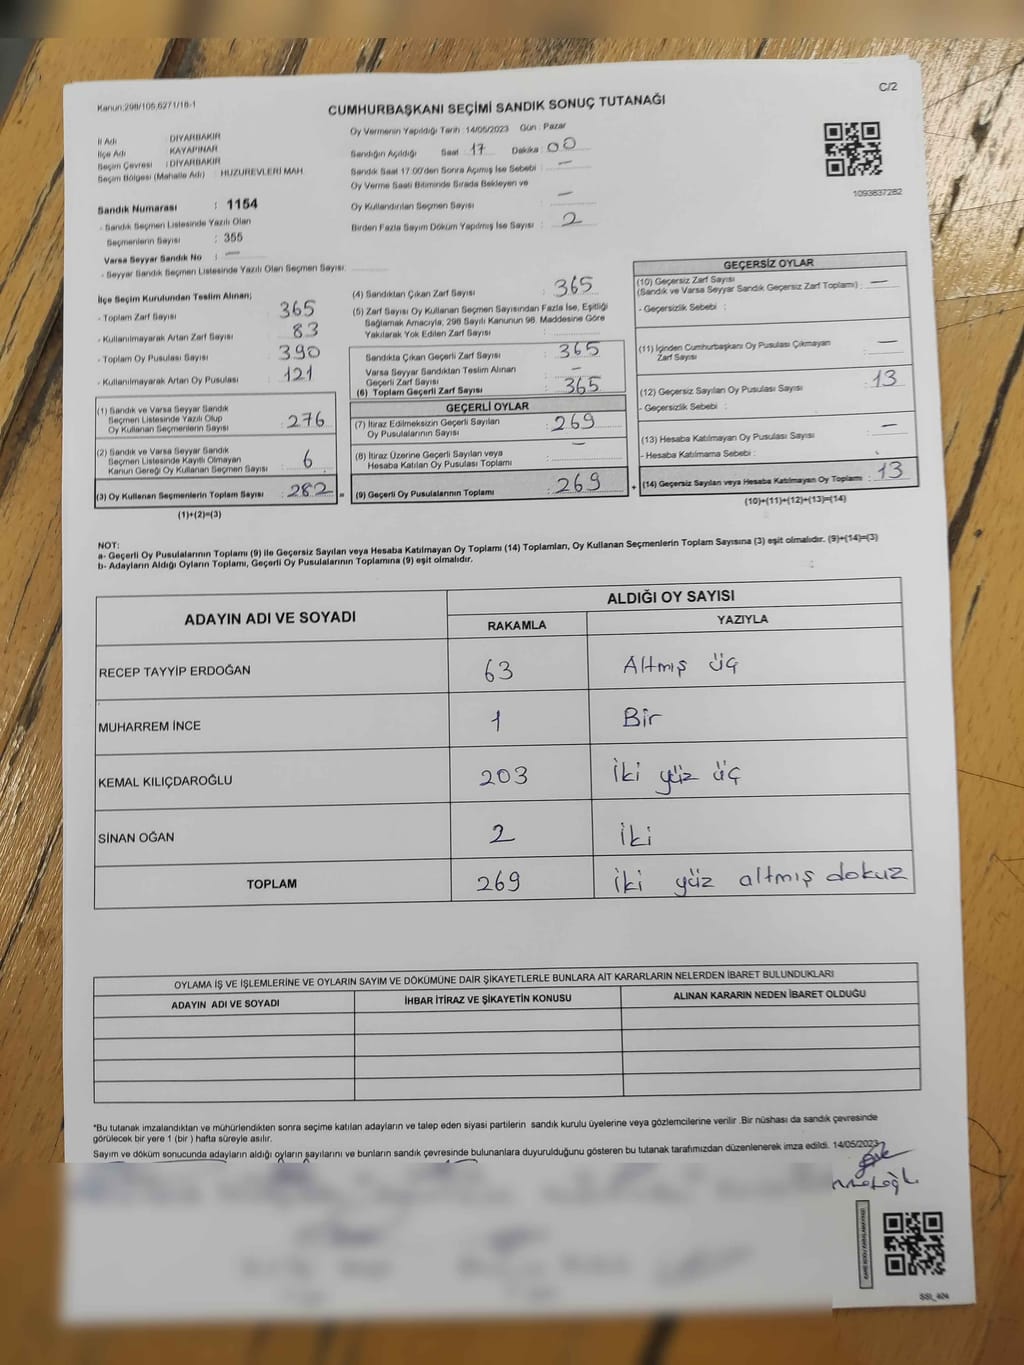 Kanun:298/105;6271/18-1
C/2
CUMHURBAŞKANI SEÇİMİ SANDIK SONUÇ TUTANAĞI
İl Adı : DİYARBAKIR
İlçe Adı : KAYAPINAR
Seçim Çevresi : DİYARBAKIR
Seçim Bölgesi (Mahalle Adı) : HUZUREVLERİ MAH.
Sandık Numarası : 1154
- Sandık Seçmen Listesinde Yazılı Olan
Seçmenlerin Sayısı : 355
Varsa Seyyar Sandık No : —
- Seyyar Sandık Seçmen Listesinde Yazılı Olan Seçmen Sayısı:
Oy Vermenin Yapıldığı Tarih :14/05/2023 Gün : Pazar
Sandığın Açıldığı Saat 17 Dakika : 00
Sandık Saat 17.00'den Sonra Açımış İse Sebebi : —
Oy Verme Saati Bitiminde Sırada Bekleyen ve
Oy Kullandırılan Seçmen Sayısı : —
Birden Fazla Sayım Döküm Yapılmış İse Sayısı : 2
1093837282
İlçe Seçim Kurulundan Teslim Alınan;
- Toplam Zarf Sayısı : 365
- Kullanılmayarak Artan Zarf Sayısı : 83
- Toplam Oy Pusulası Sayısı : 390
- Kullanılmayarak Artan Oy Pusulası : 121
(1) Sandık ve Varsa Seyyar Sandık
Seçmen Listesinde Yazılı Olup
Oy Kullanan Seçmenlerin Sayısı : 276
(2) Sandık ve Varsa Seyyar Sandık
Seçmen Listesinde Kayıtlı Olmayan
Kanun Gereği Oy Kullanan Seçmen Sayısı : 6
(3) Oy Kullanan Seçmenlerin Toplam Sayısı : 282 =
(1)+(2)=(3)
(4) Sandıktan Çıkan Zarf Sayısı : 365
(5) Zarf Sayısı Oy Kullanan Seçmen Sayısından Fazla İse, Eşitliği
Sağlamak Amacıyla, 298 Sayılı Kanunun 98. Maddesine Göre
Yakılarak Yok Edilen Zarf Sayısı :
Sandıkta Çıkan Geçerli Zarf Sayısı : 365
Varsa Seyyar Sandıktan Teslim Alınan
Geçerli Zarf Sayısı : —
(6) Toplam Geçerli Zarf Sayısı : 365
GEÇERLİ OYLAR
(7) İtiraz Edilmeksizin Geçerli Sayılan
Oy Pusulalarının Sayısı : 269
(8) İtiraz Üzerine Geçerli Sayılan veya
Hesaba Katılan Oy Pusulası Toplamı : —
(9) Geçerli Oy Pusulalarının Toplamı : 269 +
GEÇERSİZ OYLAR
(10) Geçersiz Zarf Sayısı
(Sandık ve Varsa Seyyar Sandık Geçersiz Zarf Toplamı) : —
- Geçersizlik Sebebi :
(11) İçinden Cumhurbaşkanı Oy Pusulası Çıkmayan
Zarf Sayısı : —
(12) Geçersiz Sayılan Oy Pusulası Sayısı : 13
- Geçersizlik Sebebi :
(13) Hesaba Katılmayan Oy Pusulası Sayısı : —
- Hesaba Katılmama Sebebi :
(14) Geçersiz Sayılan veya Hesaba Katılmayan Oy Toplamı : 13
(10)+(11)+(12)+(13)=(14)
NOT:
a- Geçerli Oy Pusulalarının Toplamı (9) ile Geçersiz Sayılan veya Hesaba Katılmayan Oy Toplamı (14) Toplamları, Oy Kullanan Seçmenlerin Toplam Sayısına (3) eşit olmalıdır. (9)+(14)=(3)
b- Adayların Aldığı Oyların Toplamı, Geçerli Oy Pusulalarının Toplamına (9) eşit olmalıdır.
ADAYIN ADI VE SOYADI
ALDIĞI OY SAYISI
RAKAMLA YAZIYLA
RECEP TAYYİP ERDOĞAN 63 Altmış üç
MUHARREM İNCE 1 Bir
KEMAL KILIÇDAROĞLU 203 İki yüz üç
SİNAN OĞAN 2 İki
TOPLAM 269 İki yüz altmış dokuz
OYLAMA İŞ VE İŞLEMLERİNE VE OYLARIN SAYIM VE DÖKÜMÜNE DAİR ŞİKAYETLERLE BUNLARA AİT KARARLARIN NELERDEN İBARET BULUNDUKLARI
ADAYIN ADI VE SOYADI İHBAR İTİRAZ VE ŞİKAYETİN KONUSU ALINAN KARARIN NEDEN İBARET OLDUĞU
*Bu tutanak imzalandıktan ve mühürlendikten sonra seçime katılan adayların ve talep eden siyasi partilerin sandık kurulu üyelerine veya gözlemcilerine verilir .Bir nüshası da sandık çevresinde
görülecek bir yere 1 (bir ) hafta süreyle asılır.
Sayım ve döküm sonucunda adayların aldığı oyların sayılarını ve bunların sandık çevresinde bulunanlara duyurulduğunu gösteren bu tutanak tarafımızdan düzenlenerek imza edildi. 14/05/2023
SSI_404